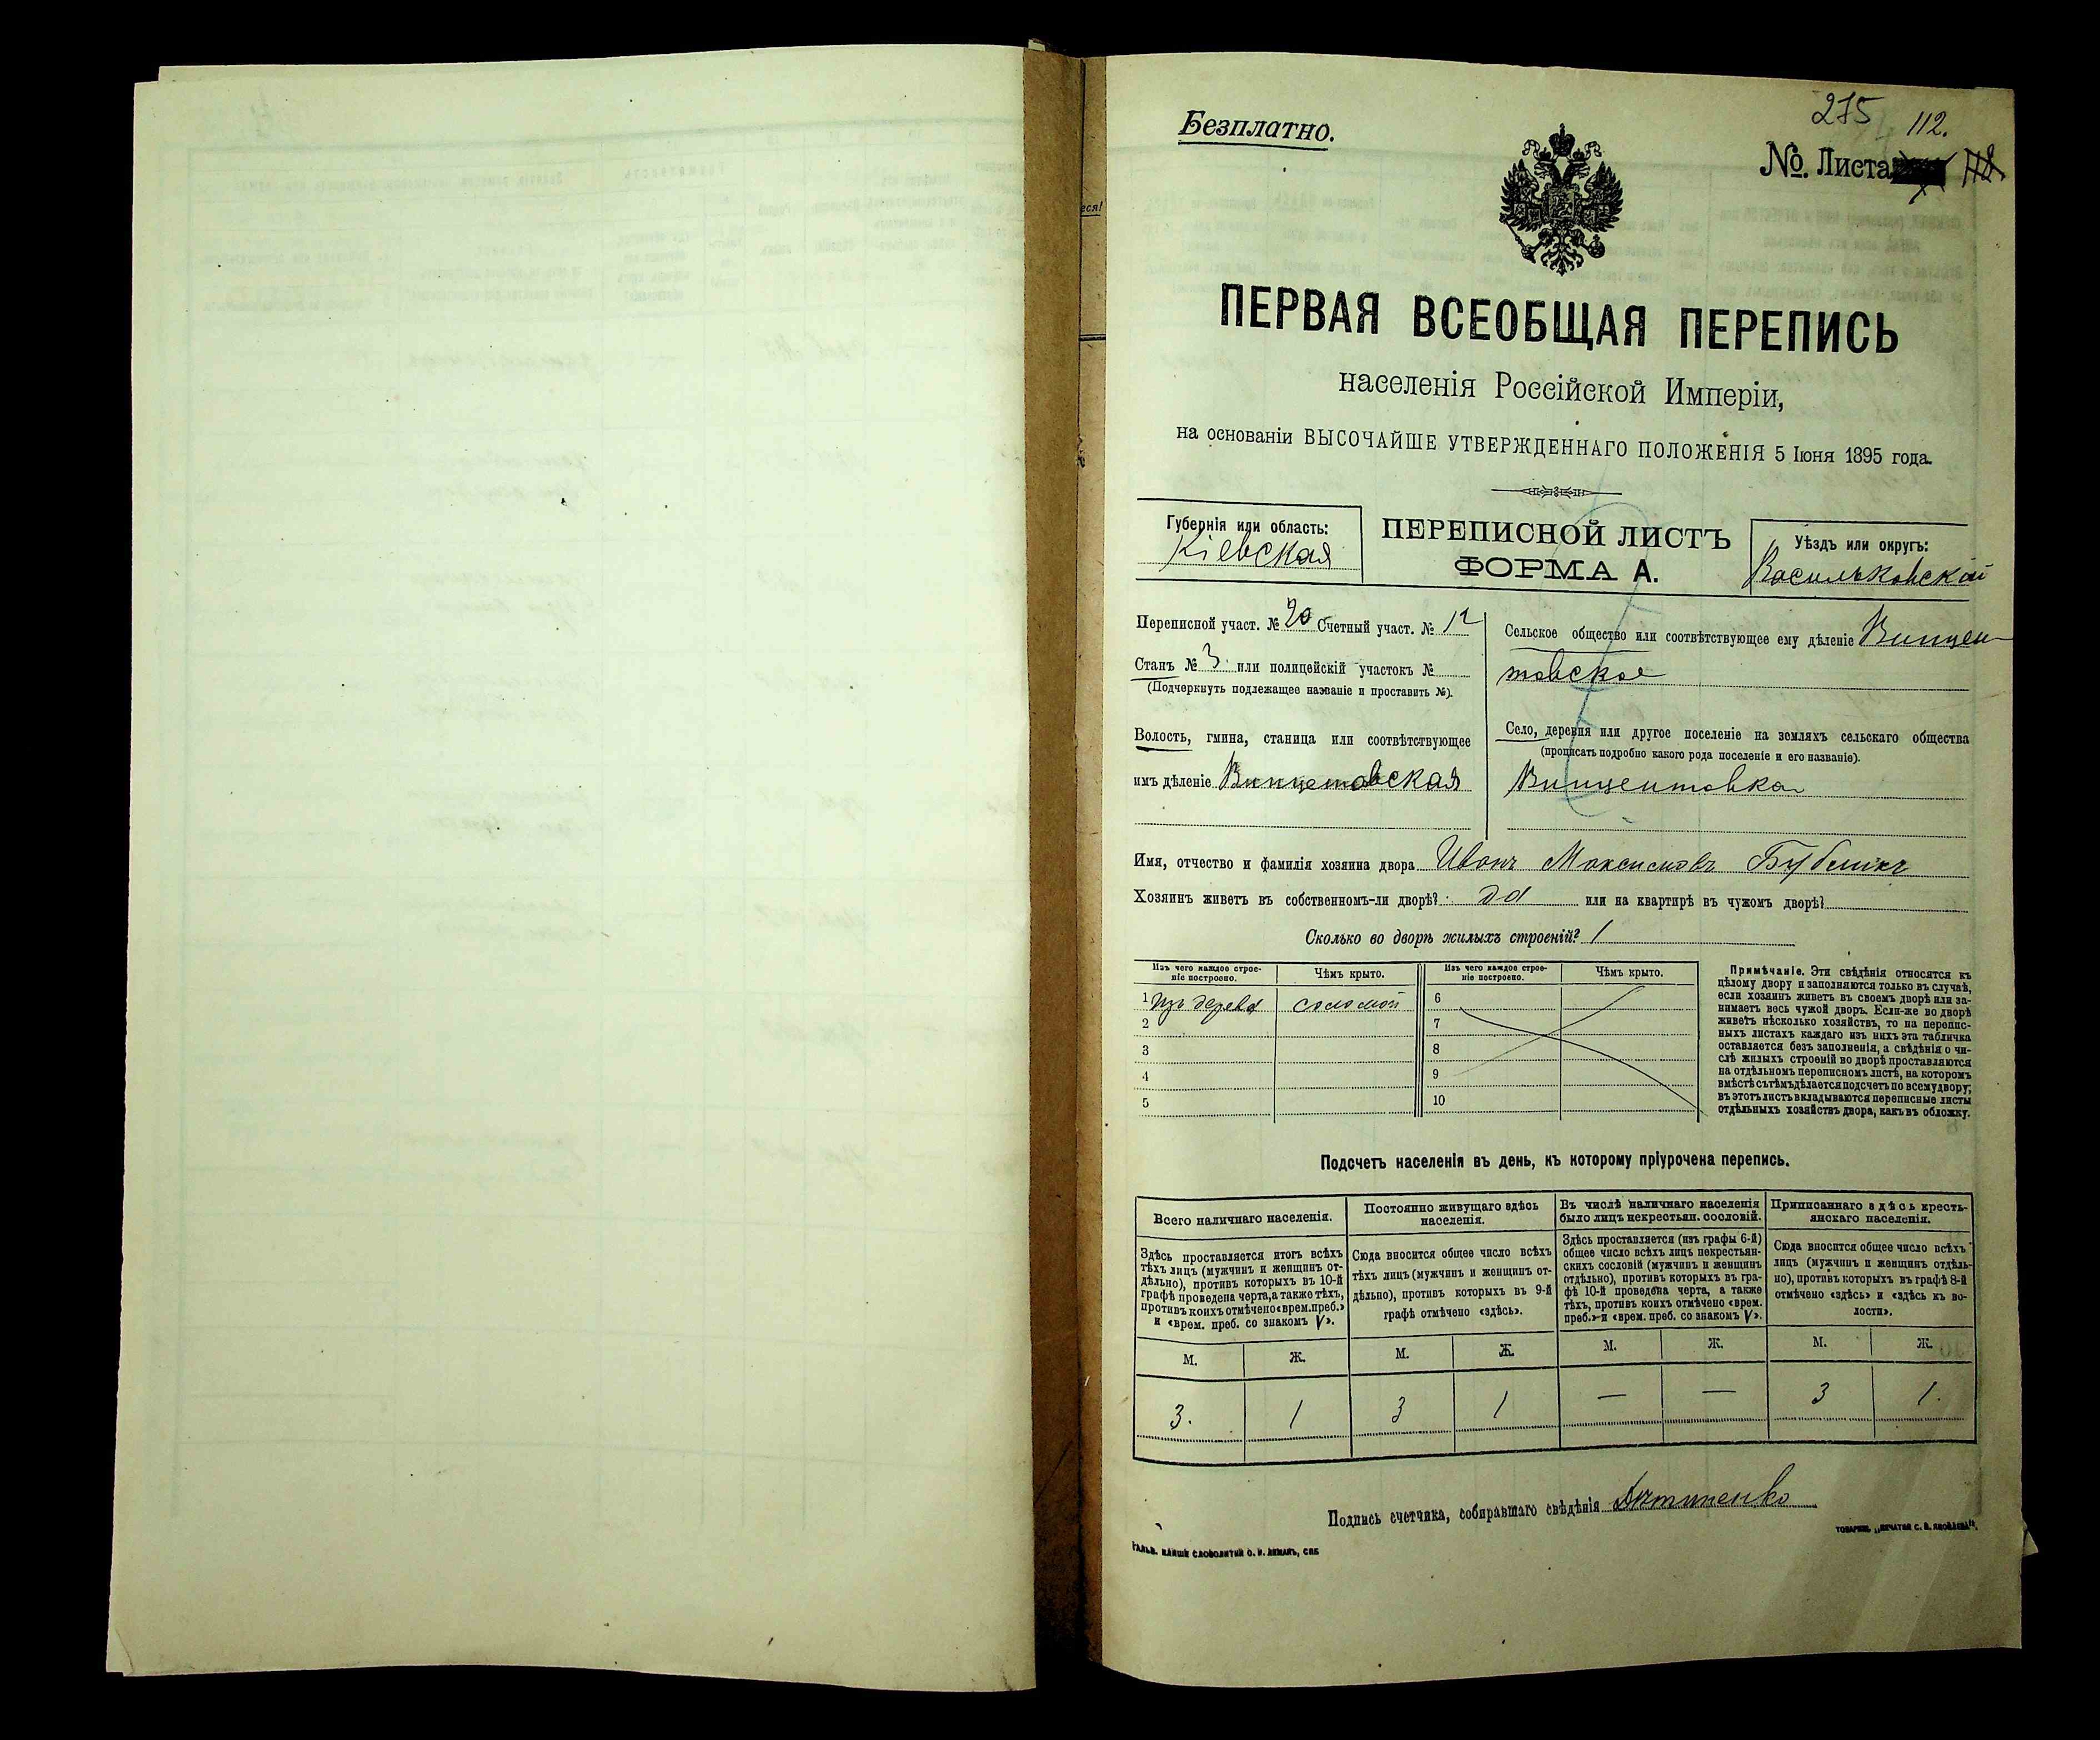 275
112.
Безплатно.
№. Листа
ПЕРВАЯ ВСЕОБЩАЯ ПЕРЕПИСЬ
населенія Россійской Имперіи,
на основаніи ВЫСОЧАЙШЕ УТВЕРЖДЕННАГО ПОЛОЖЕНІЯ 5 Іюня 1895 года.
Губернія или область:
Кіевская
ПЕРЕПИСНОЙ ЛИСТЪ
ФОРМА А.
Уѣздъ или округъ:
Васильковской
Переписной участ. № 20 Счетный участ. № 12
Станъ № 3 или полицейскій участокъ №
(Подчеркнуть подлежащее названіе и проставить №).
Волость, гмина, станица или соотвѣтствующее
имъ дѣленіе Винцетовская
Сельское общество или соотвѣтствующее ему дѣленіе Винцен-
товское
Село, деревня или другое поселеніе на земляхъ сельскаго общества
(прописать подробно какого рода поселеніе и его названіе).
Винцентовка
Имя, отчество и фамилія хозяина двора Иванъ Максимовъ Бублик
Хозяинъ живетъ въ собственномъ-ли дворѣ? да или на квартирѣ въ чужомъ дворѣ?
Сколько во дворѣ жилыхъ строеній? 1
Изъ чего каждое строе-
ніе построено.
Чѣмъ крыто.
Изъ чего каждое строе-
ніе построено.
Чѣмъ крыто.
1 изъ дерева соломой 6
2 7
3 8
4 9
5 10
Примѣчаніе. Эти свѣдѣнія относятся къ
цѣлому двору и заполняются только въ случаѣ,
если хозяинъ живетъ въ своемъ дворѣ или за-
нимаетъ весь чужой дворъ. Если-же во дворѣ
живетъ нѣсколько хозяйствъ, то на перепис-
ныхъ листахъ каждаго изъ нихъ эта табличка
оставляется безъ заполненія, а свѣдѣнія о чи-
слѣ жилыхъ строеній во дворѣ проставляются
на отдѣльномъ переписномъ листѣ, на которомъ
вмѣстѣ съ тѣмъ дѣлается подсчетъ по всему двору;
въ этотъ листъ вкладываются переписные листы
отдѣльныхъ хозяйствъ двора, какъ въ обложку.
Подсчетъ населенія въ день, къ которому пріурочена перепись.
Всего наличнаго населенія.
Здѣсь проставляется итогъ всѣхъ
тѣхъ лицъ (мужчинъ и женщинъ от-
дѣльно), противъ которыхъ въ 10-й
графѣ проведена черта, а также тѣхъ,
противъ коихъ отмѣчено «врем. преб.»
и «врем. преб. со знакомъ V».
Постоянно живущаго здѣсь
населенія.
Сюда вносится общее число всѣхъ
тѣхъ лицъ (мужчинъ и женщинъ от-
дѣльно), противъ которыхъ въ 9-й
графѣ отмѣчено «здѣсь».
Въ числѣ наличнаго населенія
было лицъ некрестьян. сословій.
Здѣсь проставляется (изъ графы 6-й)
общее число всѣхъ лицъ некрестьян-
скихъ сословій (мужчинъ и женщинъ
отдѣльно), противъ которыхъ въ гра-
фѣ 10-й проведена черта, а также
тѣхъ, противъ коихъ отмѣчено «врем.
преб.» и «врем. преб. со знакомъ V».
Приписаннаго здѣсь кресть-
янскаго населенія.
Сюда вносится общее число всѣхъ
лицъ (мужчинъ и женщинъ отдѣль-
но), противъ которыхъ въ графѣ 8-й
отмѣчено «здѣсь» и «здѣсь къ во-
лости».
М. Ж. М. Ж. М. Ж. М. Ж.
3. 1 3 1 — — 3 1.
Подпись счетчика, собиравшаго свѣдѣнія
ГАЛЬВ. КЛИШЕ СЛОВОЛИТНИ О. И. ЛЕМАНЪ, СПБ
ТОВАРИЩ. „ПЕЧАТНЯ С. П. ЯКОВЛЕВА".